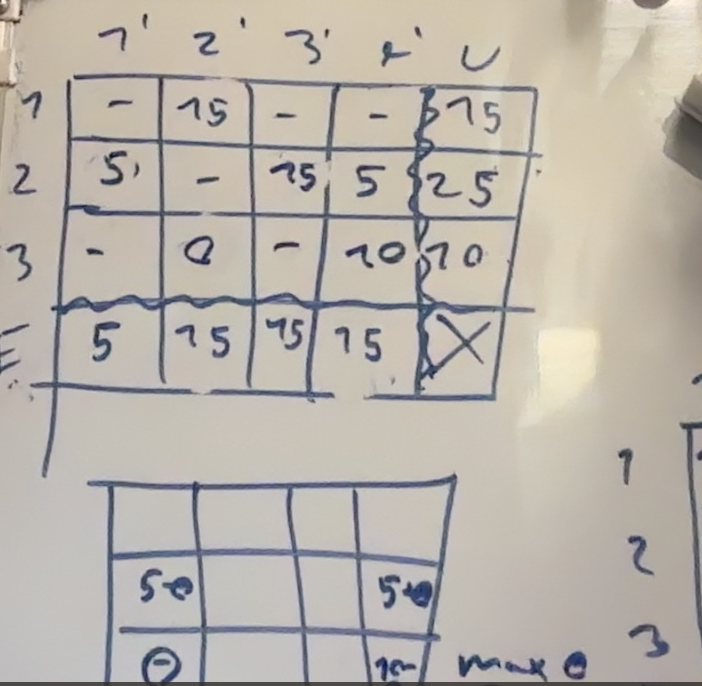 1' 2' 3' 4' U
1 - 15 - - 15
2 5 - 15 5 25
3 - 0 - 10 10
5 15 15 15 X
1
5-Θ 5+Θ 2
Θ 10- max Θ 3